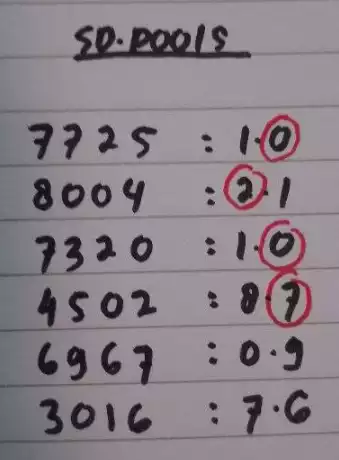 SD.POOLS
7725 : 1.0
8004 : 2.1
7320 : 1.0
4502 : 8.7
6967 : 0.9
3016 : 7.6